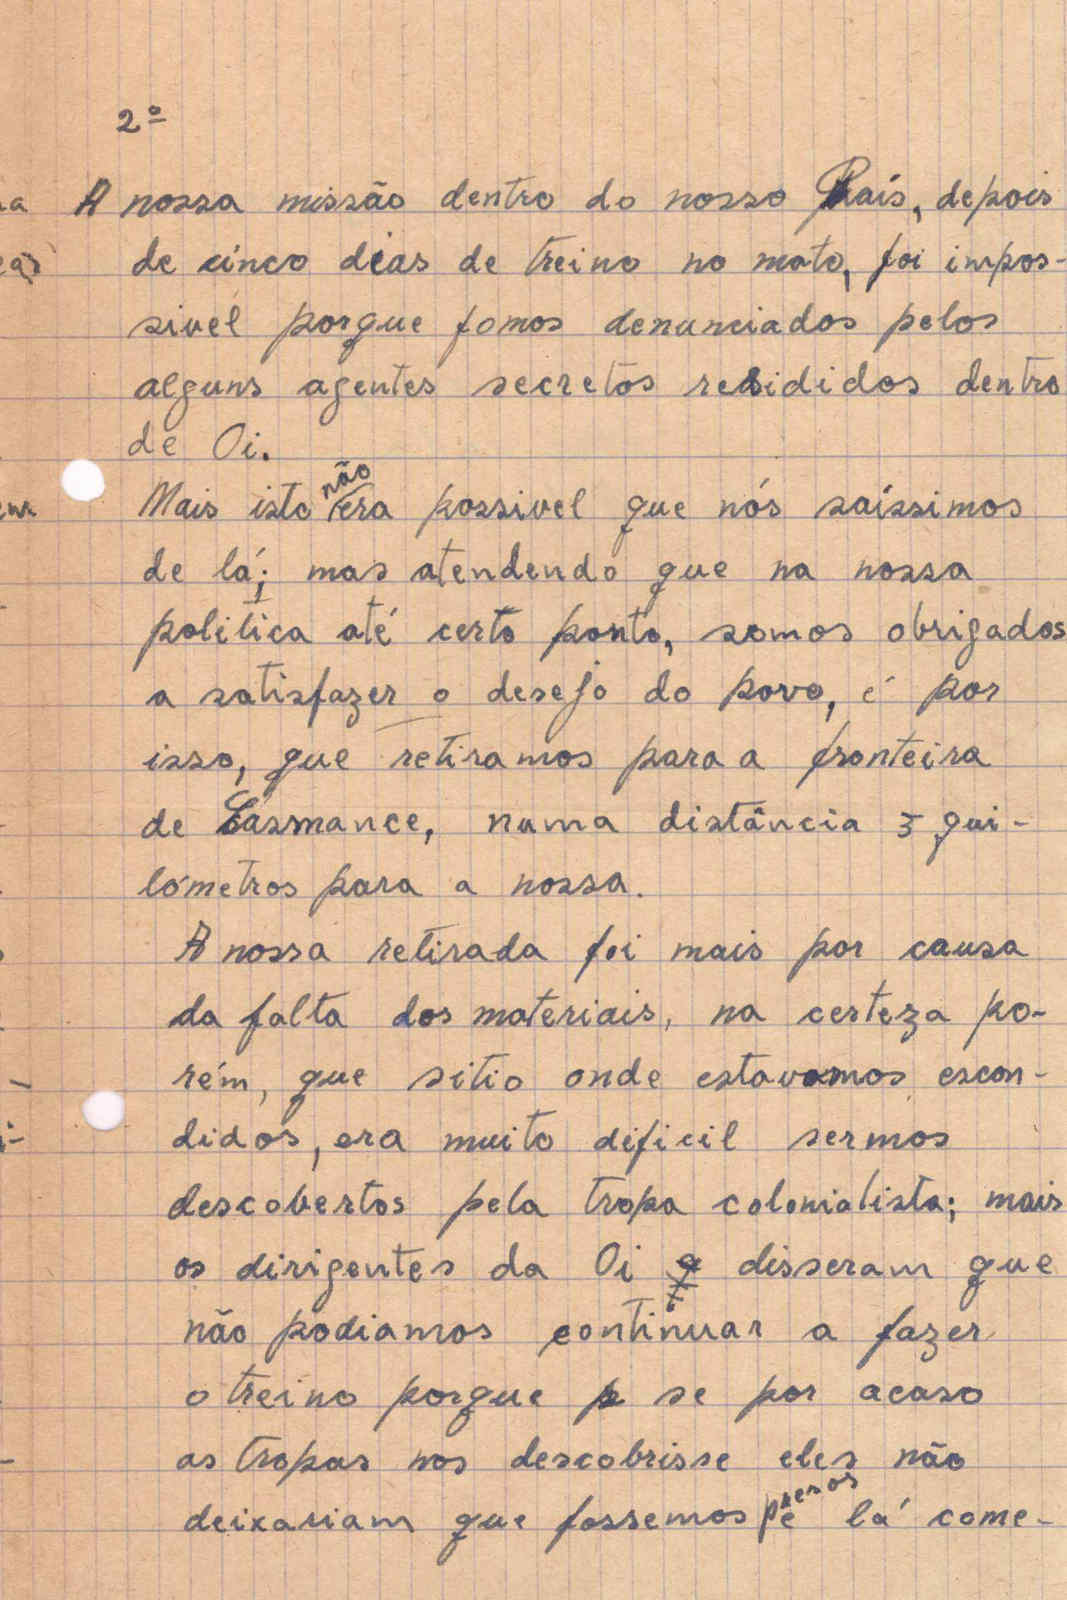 2º
A nossa missão dentro do nosso País, depois
de cinco dias de treino no mato, foi impos-
sivel porque fomos denunciados pelos
alguns agentes secretos residídos dentro
de Oi.
Mais isto não era possivel que nós saíssimos
de lá; mas atendendo que na nossa
politica até certo ponto, somos obrigados
a satisfazer o desejo do povo, é por
isso, que retiramos para a fronteira
de Casmance, numa distância 3 qui-
lómetros para a nossa.
A nossa retirada foi mais por causa
da falta dos materiais, na certeza po-
rém, que sitio onde estavamos escon-
didos, era muito dificil sermos
descobertos pela tropa colonialista; mais
os dirigentes da Oi disseram que
não podiamos continuar a fazer
o treino porque se por acaso
as tropas nos descobrisse eles não
deixariam que fossemos presos lá come-